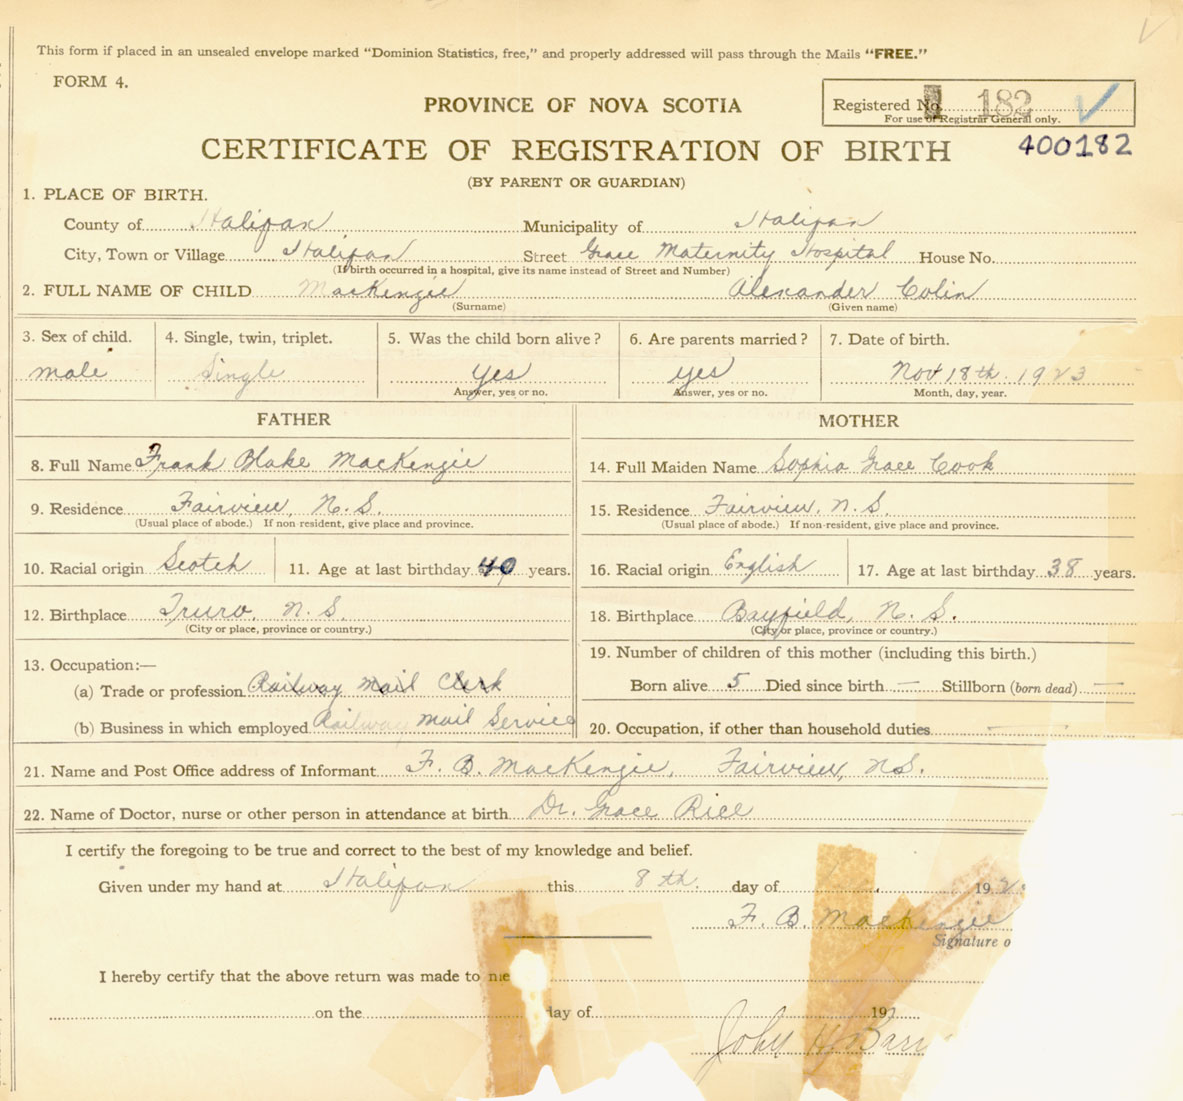 This form if placed in an unsealed envelope marked "Dominion Statistics, free," and properly addressed will pass through the Mails "FREE."
FORM 4.
PROVINCE OF NOVA SCOTIA
Registered No. 182
For use of Registrar General only.
CERTIFICATE OF REGISTRATION OF BIRTH
400182
(BY PARENT OR GUARDIAN)
1. PLACE OF BIRTH.
County of Halifax Municipality of Halifax
City, Town or Village Halifax Street Grace Maternity Hospital House No.
(If birth occurred in a hospital, give its name instead of Street and Number)
2. FULL NAME OF CHILD MacKenzie Alexander Colin
(Surname) (Given name)
3. Sex of child. 4. Single, twin, triplet. 5. Was the child born alive? 6. Are parents married? 7. Date of birth.
male Single yes yes Nov 18th 1923
Answer, yes or no. Answer, yes or no. Month, day, year.
FATHER MOTHER
8. Full Name Frank Blake MacKenzie 14. Full Maiden Name Sophia Grace Cook
9. Residence Fairview, N.S. 15. Residence Fairview, N.S.
(Usual place of abode.) If non-resident, give place and province. (Usual place of abode.) If non-resident, give place and province.
10. Racial origin Scotch 11. Age at last birthday 40 years. 16. Racial origin English 17. Age at last birthday 38 years.
12. Birthplace Truro, N.S. 18. Birthplace Bayfield, N.S.
(City or place, province or country.) (City or place, province or country.)
13. Occupation:— 19. Number of children of this mother (including this birth.)
(a) Trade or profession Railway Mail Clerk Born alive 5 Died since birth — Stillborn (born dead) —
(b) Business in which employed Railway Mail Service 20. Occupation, if other than household duties —
21. Name and Post Office address of Informant F. B. MacKenzie, Fairview, N.S.
22. Name of Doctor, nurse or other person in attendance at birth Dr. Grace Rice
I certify the foregoing to be true and correct to the best of my knowledge and belief.
Given under my hand at Halifax this 8th. day of 192
F. B. MacKenzie
Signature o
I hereby certify that the above return was made to me
on the day of 192
John H. Barn